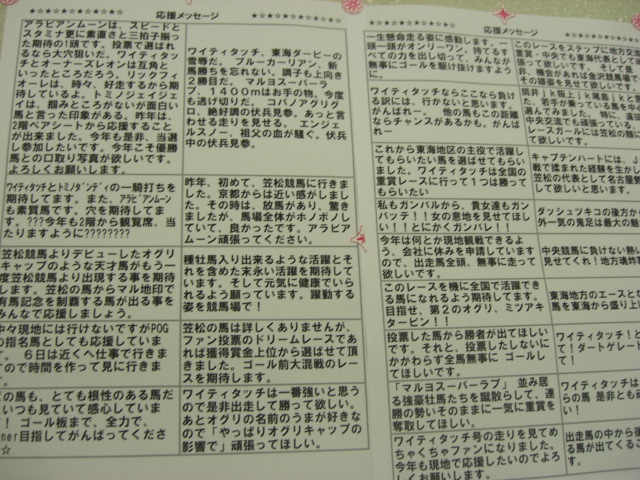 応援メッセージ
アラビアンムーンは、スピードと
スタミナ更に素直さと三拍子揃っ
た期待の1頭です。投票で選ばれ
るなら大穴狙いだ。ワイティタッチ
とオーナーズレオンは互角と
いったところだろう。リックフィ
オーレは、時々、好走するから期
待しているよ。トミノジェイシ
イは、掴みどころがないが面白い
馬と言った印象がある。昨年は、
2階ペアシートから応援すること
が出来ました。今年も是非、当選
し参加したいです。今年こそ優勝
馬との口取り写真が欲しいです。
よろしくお願いします。
ワイティタッチ、東海ダービーの
雪辱だ。 ブルーカーリアン、新
馬勝ちを忘れない。調子も上向き
２勝目だ。 マルヨスーパーラ
ブ、１４００ｍはお手の物。今度
も逃げ切りだ。 コパノアグリグ
ロ、絶好調の伏兵見参。あっと言
わせる走りを見せる。 エンジェ
ルスノー、祖父の血が騒ぐ。伏兵
中の伏兵見参。
ワイティタッチとトミノダンディの一騎打ちを
期待してます。また、アラビアンムーン
も素質馬です。穴を期待してま
す。???今年も2階から観覧席、当
たりますように????????
昨年、初めて、笠松競馬に行きま
した。京都からは近い感がしまし
た。その時は、放馬があり、驚き
ましたが、馬場全体がホノボノし
ていて、良かったです。アラビア
ムーン頑張ってください。
笠松競馬よりデビューしたオグリ
キャップのような天才馬がもう一
度笠松競馬より出現する事を期待
します。笠松の馬からマル地印で
有馬記念を制覇する馬が出る事を
みんなで応援しましょう。
種牡馬入り出来るような活躍とそ
れを含めた末永い活躍を期待して
います。そして元気に健康でいら
れるよう願っています。躍動する
姿を競馬場で！
中々現地には行けないですがPOG
の指名馬としても応援していま
す。 ６日は近くへ仕事で行きま
すので時間を作って見に行きま
す。
笠松の馬は詳しくありませんが、
ファン投票のドリームレースであ
れば獲得賞金上位から選ばせて頂
きました。ゴール前大混戦のレー
スを期待します。
の馬も、とても根性のある馬だ
といつも見ていて感心していま
す！ ゴール板まで、全力で、
nner目指してがんばってくださ
☆
ワイティタッチは一番強いと思う
ので是非出走して勝って欲しい。
あとオグリの名前のうまが好きな
ので「やっぱりオグリキャップの
影響で」頑張ってほしい。
応援メッセージ
一生懸命走る姿に感動します。一
頭一頭がオンリーワン。持てる
べての力を出し切って、みんなが
無事にゴールを駆け抜けますよう
に。
このレースをステップに地方交
流・中央でも東海代表として
って欲しいです。 そして是
非、機会があれば金沢競馬
その雄姿を見せて欲しいです。
ワイティタッチならここなら負け
る訳には、行かないと思います。
がんばれー。 他の馬もこの距離
ならチャンスがあるかも。がんば
れー
た。若手が乗っている馬を
選んでみました。特に、
中央交流でも頑張っている
レースガールには笠松の
て欲しいです。
これから東海地区の主役で活躍し
てもらいたい馬を選ばせてもらい
ました。ワイティタッチは全国の
重賞レースに行って１つは勝って
もらいたい
キャプテンハートには、J
戦で揉まれた経験を生かし
笠松の代表として名古屋
して欲しいと思います。
私もガンバルから、貴女達もガン
バッテ！！女の意地を見せてほし
い！！とにかくガンバレ！！
ダッシュツキコの後方か
外一気の鬼足は最大の魅
今年は何とか現地観戦できるよ
う、会社に休みを申請しています
ので、出走馬全頭、無事に走って
欲しいです。
中央競馬に負けない熱い
見せてくれ！地方魂炸
このレースを機に全国で活躍でき
る馬になれるよう期待してます。
目指せ、第２のオグリ、ミツアキ
タービン！！
東海地方のエースとな
馬を東海から盛り上
投票した馬から勝者が出てほしい
です。それと、投票したしないに
かかわらず全馬無事に ゴールし
てほしいです。
ワイティタッチ！と
て！ダートゲレート
ト！
「マルヨスーパーラブ」 並み居
る強豪牡馬たちを蹴散らして、連
勝の勢いそのままに一気に重賞を
奪取してほしい。
ワイティタッチは
らの馬 是非とも
い！
ワイティタッチ号の走りを見てめ
ちゃくちゃファンになりました。
今年も現地で応援したいのでよろ
しくお願いします。
出走馬の中から後
る馬が出てくるこ
す。